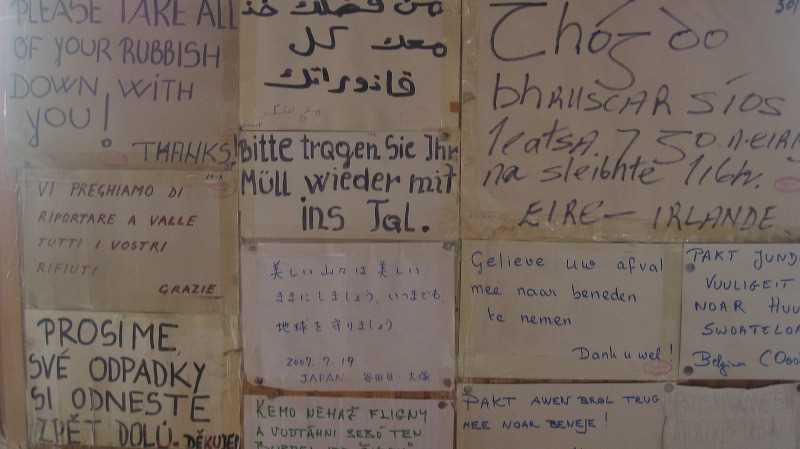 PLEASE TAKE ALL
OF YOUR RUBBISH
DOWN WITH
YOU!
THANKS!
من فضلك خذ
معك كل
قاذوراتك
Thóg do
bhRUSCAR síos
leatsa 7 go n-eirí
na sleibhte libh.
EIRE - IRLANDE
VI PREGHIAMO DI
RIPORTARE A VALLE
TUTTI I VOSTRI
RIFIUTI
GRAZIE
Bitte tragen Sie Ihr
Müll wieder mit
ins Tal.
美しい山々は美しい
ままにしましょう、いつまでも
地球を守りましょう
2007.7.19
JAPAN
Gelieve uw afval
mee naar beneden
te nemen
Dank u wel!
PAKT JUND
VUULIGEIT
NOAR HUU
SWOATELOM
Belgium
PROSIME,
SVÉ ODPADKY
SI ODNESTE
ZPĚT DOLŮ. DĚKUJEI
KEMO NEHAČ FLIGNY
A VODTÁHNI SEBÓ TEN
PAKT AWEN BROL TRUG
MEE NOAR BENEJE!